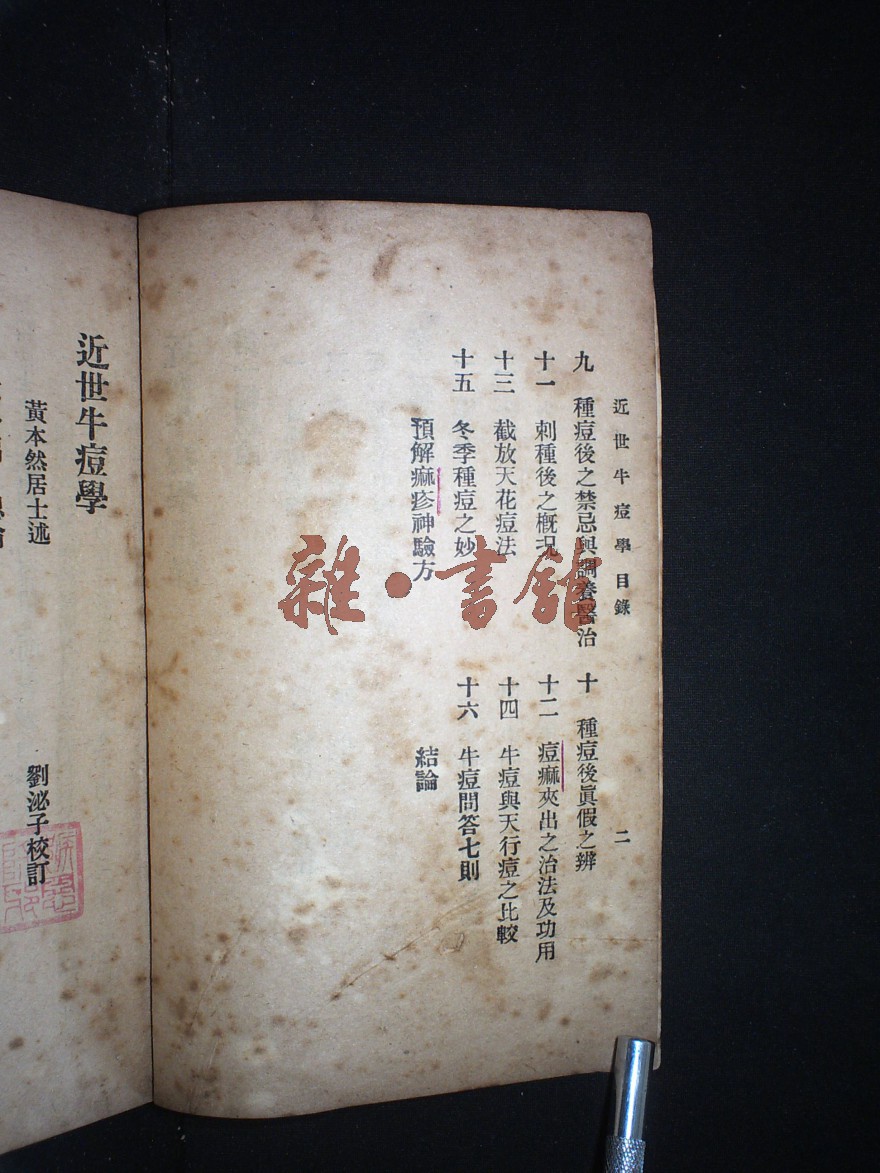 近世牛痘學目錄　二
九　種痘後之禁忌與調養醫治　十　種痘後眞假之辨
十一　刺種後之槪况　十二　痘痲夾出之治法及功用
十三　截放天花痘法　十四　牛痘與天行痘之比較
十五　冬季種痘之妙　十六　牛痘問答七則
預解痲疹神驗方　結論
近世牛痘學
黃本然居士述　劉泌子校訂
雜·書館